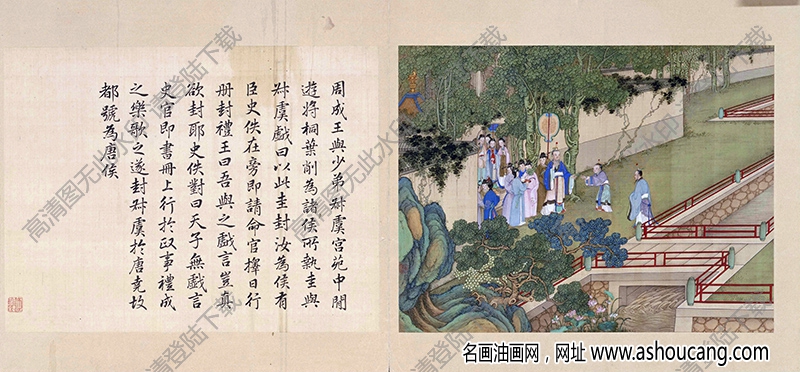 周成王與少弟叔虞宮苑中閒
遊將桐葉削為諸侯所執圭與
叔虞戲曰以此圭封汝為侯有
臣史佚在旁即請命官擇日行
册封禮王曰吾與之戲言豈真
欲封耶史佚對曰天子無戲言
史官即書冊上行於政事禮成
之樂歌之遂封叔虞於唐堯故
都號為唐侯
高清图无此水印 请登陆下载
名画油画网，网址 www.ashoucang.com